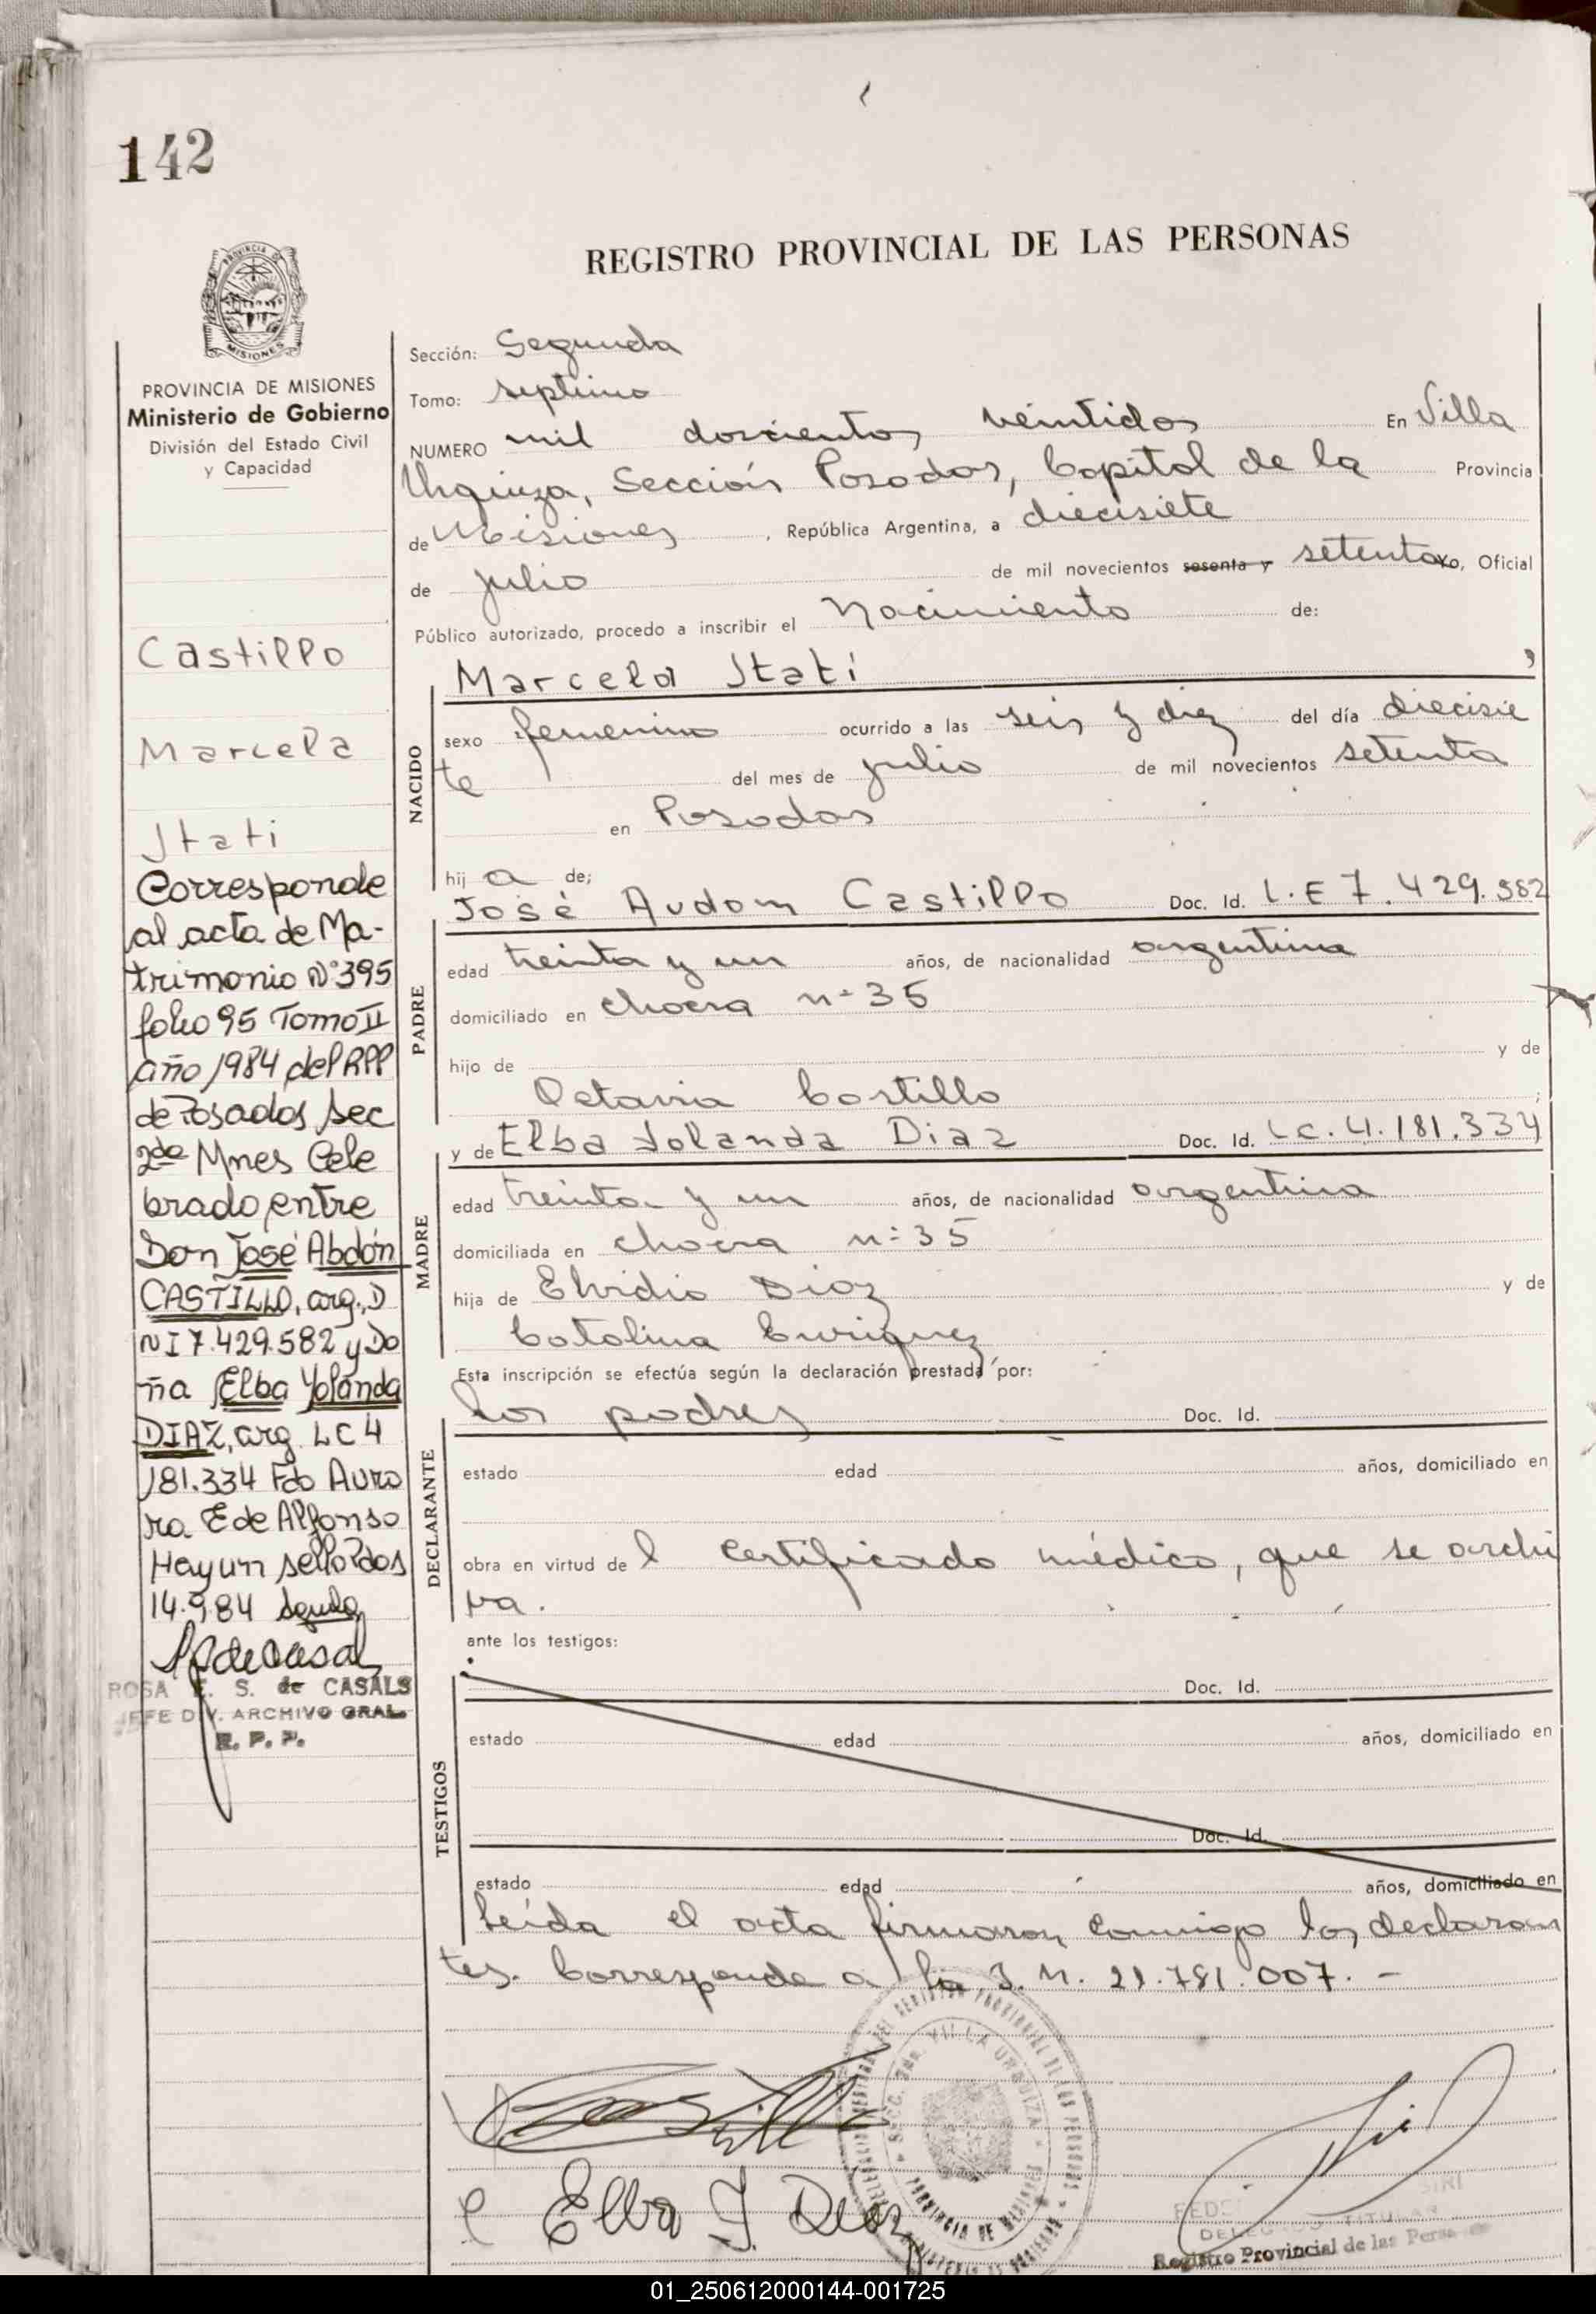 142
REGISTRO PROVINCIAL DE LAS PERSONAS
PROVINCIA DE MISIONES
MISIONES
PROVINCIA DE MISIONES
Ministerio de Gobierno
División del Estado Civil
y Capacidad
Castillo
Marcela
Itati
Corresponde
al acta de Ma-
trimonio N° 395
folio 95 Tomo II
año 1984 del RPP
de Posadas sec
2da Mnes Cele
brado entre
Don José Abdón
CASTILLO, arg., D
NI 7.429.582 y Do
ña Elba Yolanda
DIAZ, arg. LC 4
181.334 Fdo Auro
ra E de Alfonso
Hay un sello Pdos
14.9.84
ROSA E. S. de CASALS
JEFE DIV. ARCHIVO GRAL.
R. P. P.
Sección: Segunda
Tomo: septimo
NUMERO mil doscientos veintidos En Villa
Urquiza, Sección Posadas, Capital de la Provincia
de Misiones, República Argentina, a diecisiete
de julio de mil novecientos sesenta y setenta Yo, Oficial
Público autorizado, procedo a inscribir el Nacimiento de:
NACIDO
Marcela Itatí,
sexo femenino ocurrido a las seis y diez del día diecisie
te del mes de julio de mil novecientos setenta
en Posadas
hija de;
PADRE
José Audon Castillo Doc. Id. L.E 7.429.582
edad treinta y un años, de nacionalidad argentina
domiciliado en chacra n° 35
hijo de y de
Octavia Castillo;
MADRE
y de Elba Yolanda Diaz Doc. Id. LC. 4.181.334
edad treinta y un años, de nacionalidad argentina
domiciliada en chacra n° 35
hija de Elvidio Diaz y de
Catalina Enriquez
Esta inscripción se efectúa según la declaración prestada por:
DECLARANTE
los padres Doc. Id.
estado edad años, domiciliado en
obra en virtud del certificado médico, que se archi
va.
ante los testigos:
TESTIGOS
Doc. Id.
estado edad años, domiciliado en
Doc. Id.
estado edad años, domiciliado en
Leída el acta firmaron conmigo los declaran
tes. Corresponde a la I. M. 21.781.007. -
Castillo
Elba Y Diaz
VILLA URQUIZA
PROVINCIA DE MISIONES
DELEGADO TITULAR
Registro Provincial de las Personas
01_250612000144-001725